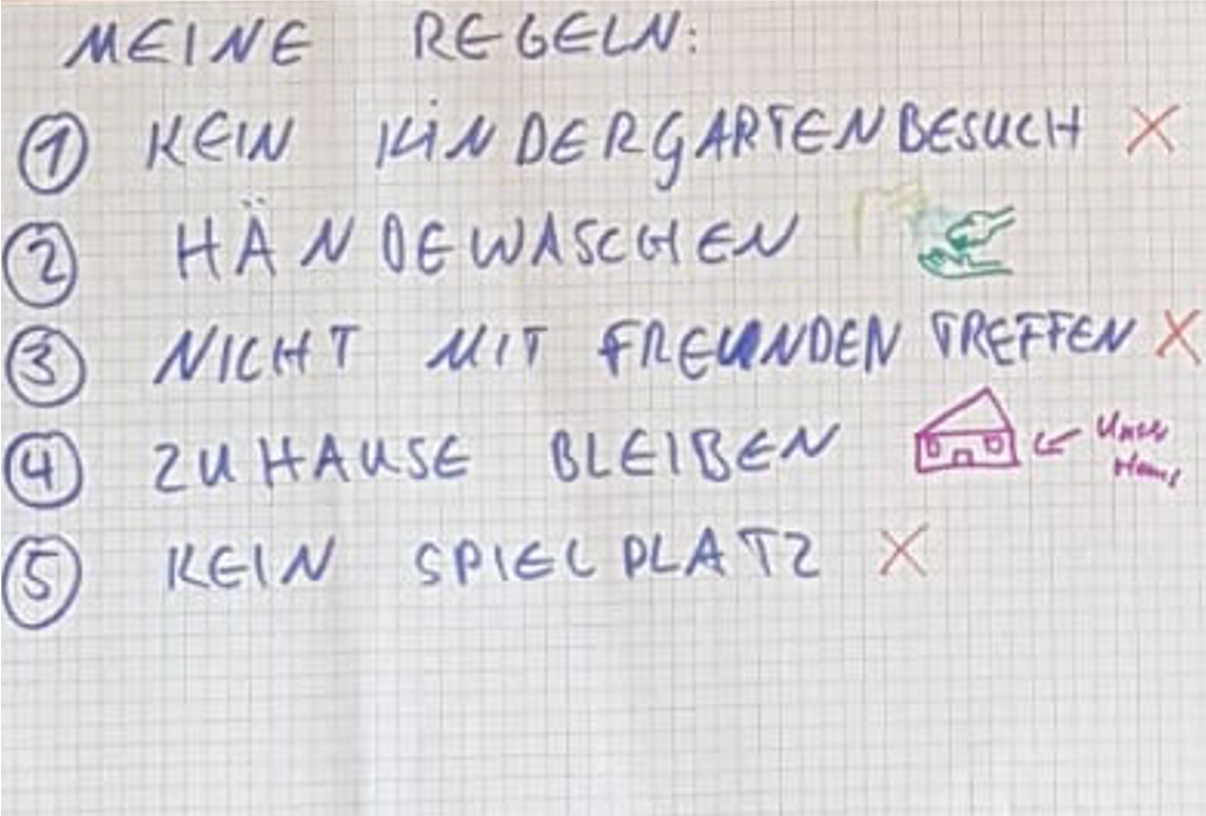 MEINE REGELN:
1 KEIN KINDERGARTENBESUCH X
2 HÄNDEWASCHEN
3 NICHT MIT FREUNDEN TREFFEN X
4 ZUHAUSE BLEIBEN ← Unser Haus
5 KEIN SPIELPLATZ X